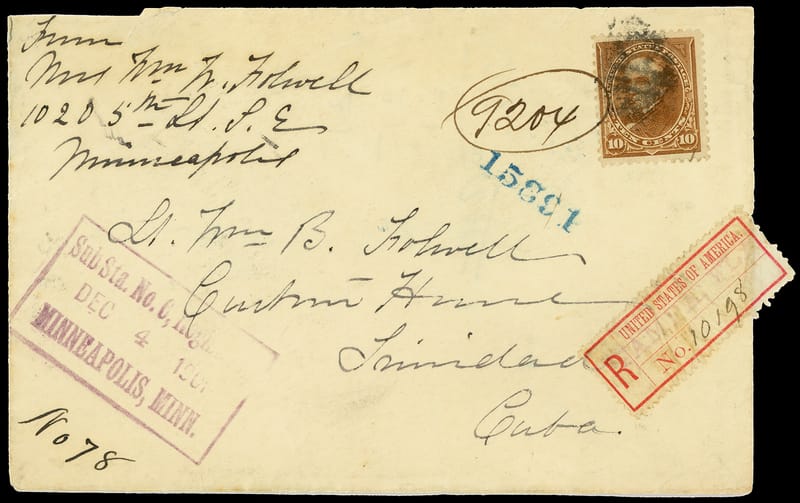 From
Mrs Wm W. Folwell
1020 5th St. S. E
Minneapolis
9204
UNITED STATES POSTAGE
10 TEN CENTS 10
15891
Lt. Wm B. Folwell
Custom House
Trinidad
Cuba.
Sub Sta. No. 6,
DEC 4
MINNEAPOLIS, MINN.
UNITED STATES OF AMERICA.
R
No. 10198
No 78